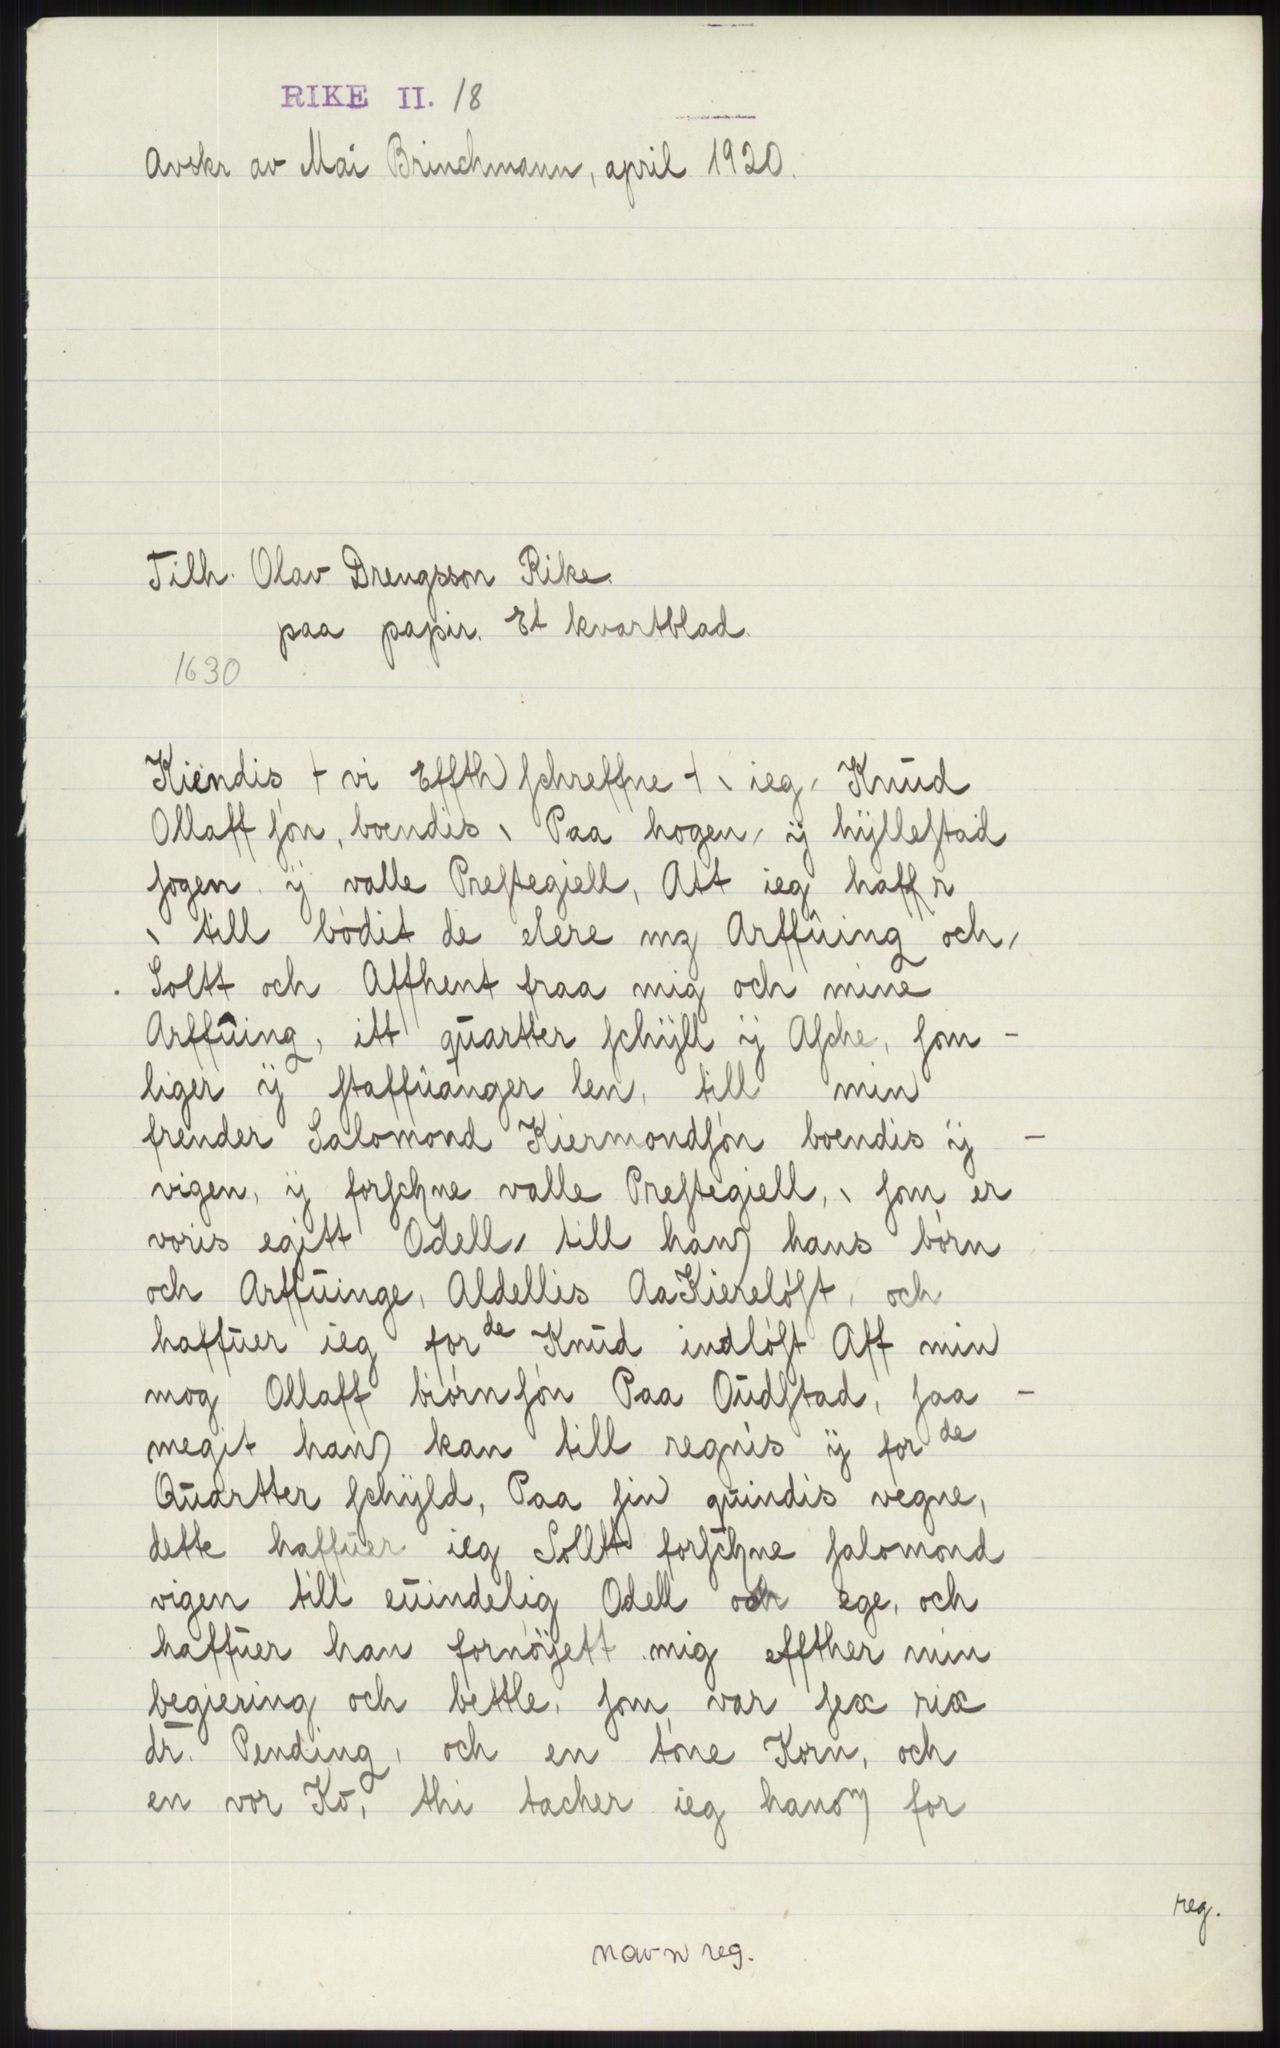 RIKE II. 18
Avskr av Mai Brinchmann, april 1920.
Tilh. Olav Drengsson Rike.
paa papir. Et kvartblad.
1630
Kiendis + vi Effth ſchreffne +, ieg, Knŭd
Ollaff ſón, boendis, Paa hogen, ÿ hÿlleſtad
ſogen ÿ valle Preſtegiell, Att ieg haffr
, till bódit de elere mz Arffŭing och,
Soltt och Affhent fraa mig och mine
Arffŭing, itt qŭartter ſchÿll ÿ Aſche, ſom -
liger ÿ ſtaffŭanger len, till min
frender Salomond Kiermondſón boendis ÿ -
vigen, ÿ forſchne valle Preſtegiell, , ſom er
voris egitt Odell, till hans hans bórn
och Arffŭinge, Aldellis AaKierelóſt, och
haffŭer ieg for de Knŭd indlóſt Aff min
mog Ollaff biórnſón Paa Oŭdſtad, ſaa -
megit han kan till regnis ÿ for de
Qŭartter ſchÿld, Paa ſin qŭindis vegne,
dette haffŭer ieg Solltt forſchne ſalomond
vigen till eŭindelig Odell och ege, och
haffŭer han fornóÿett mig effther min
begiering och bettle, ſom var ſex rix
dr. Pending, och en tóne Korn, och
en vor Ko, thi tacher ieg hanom for
reg.
navn reg.